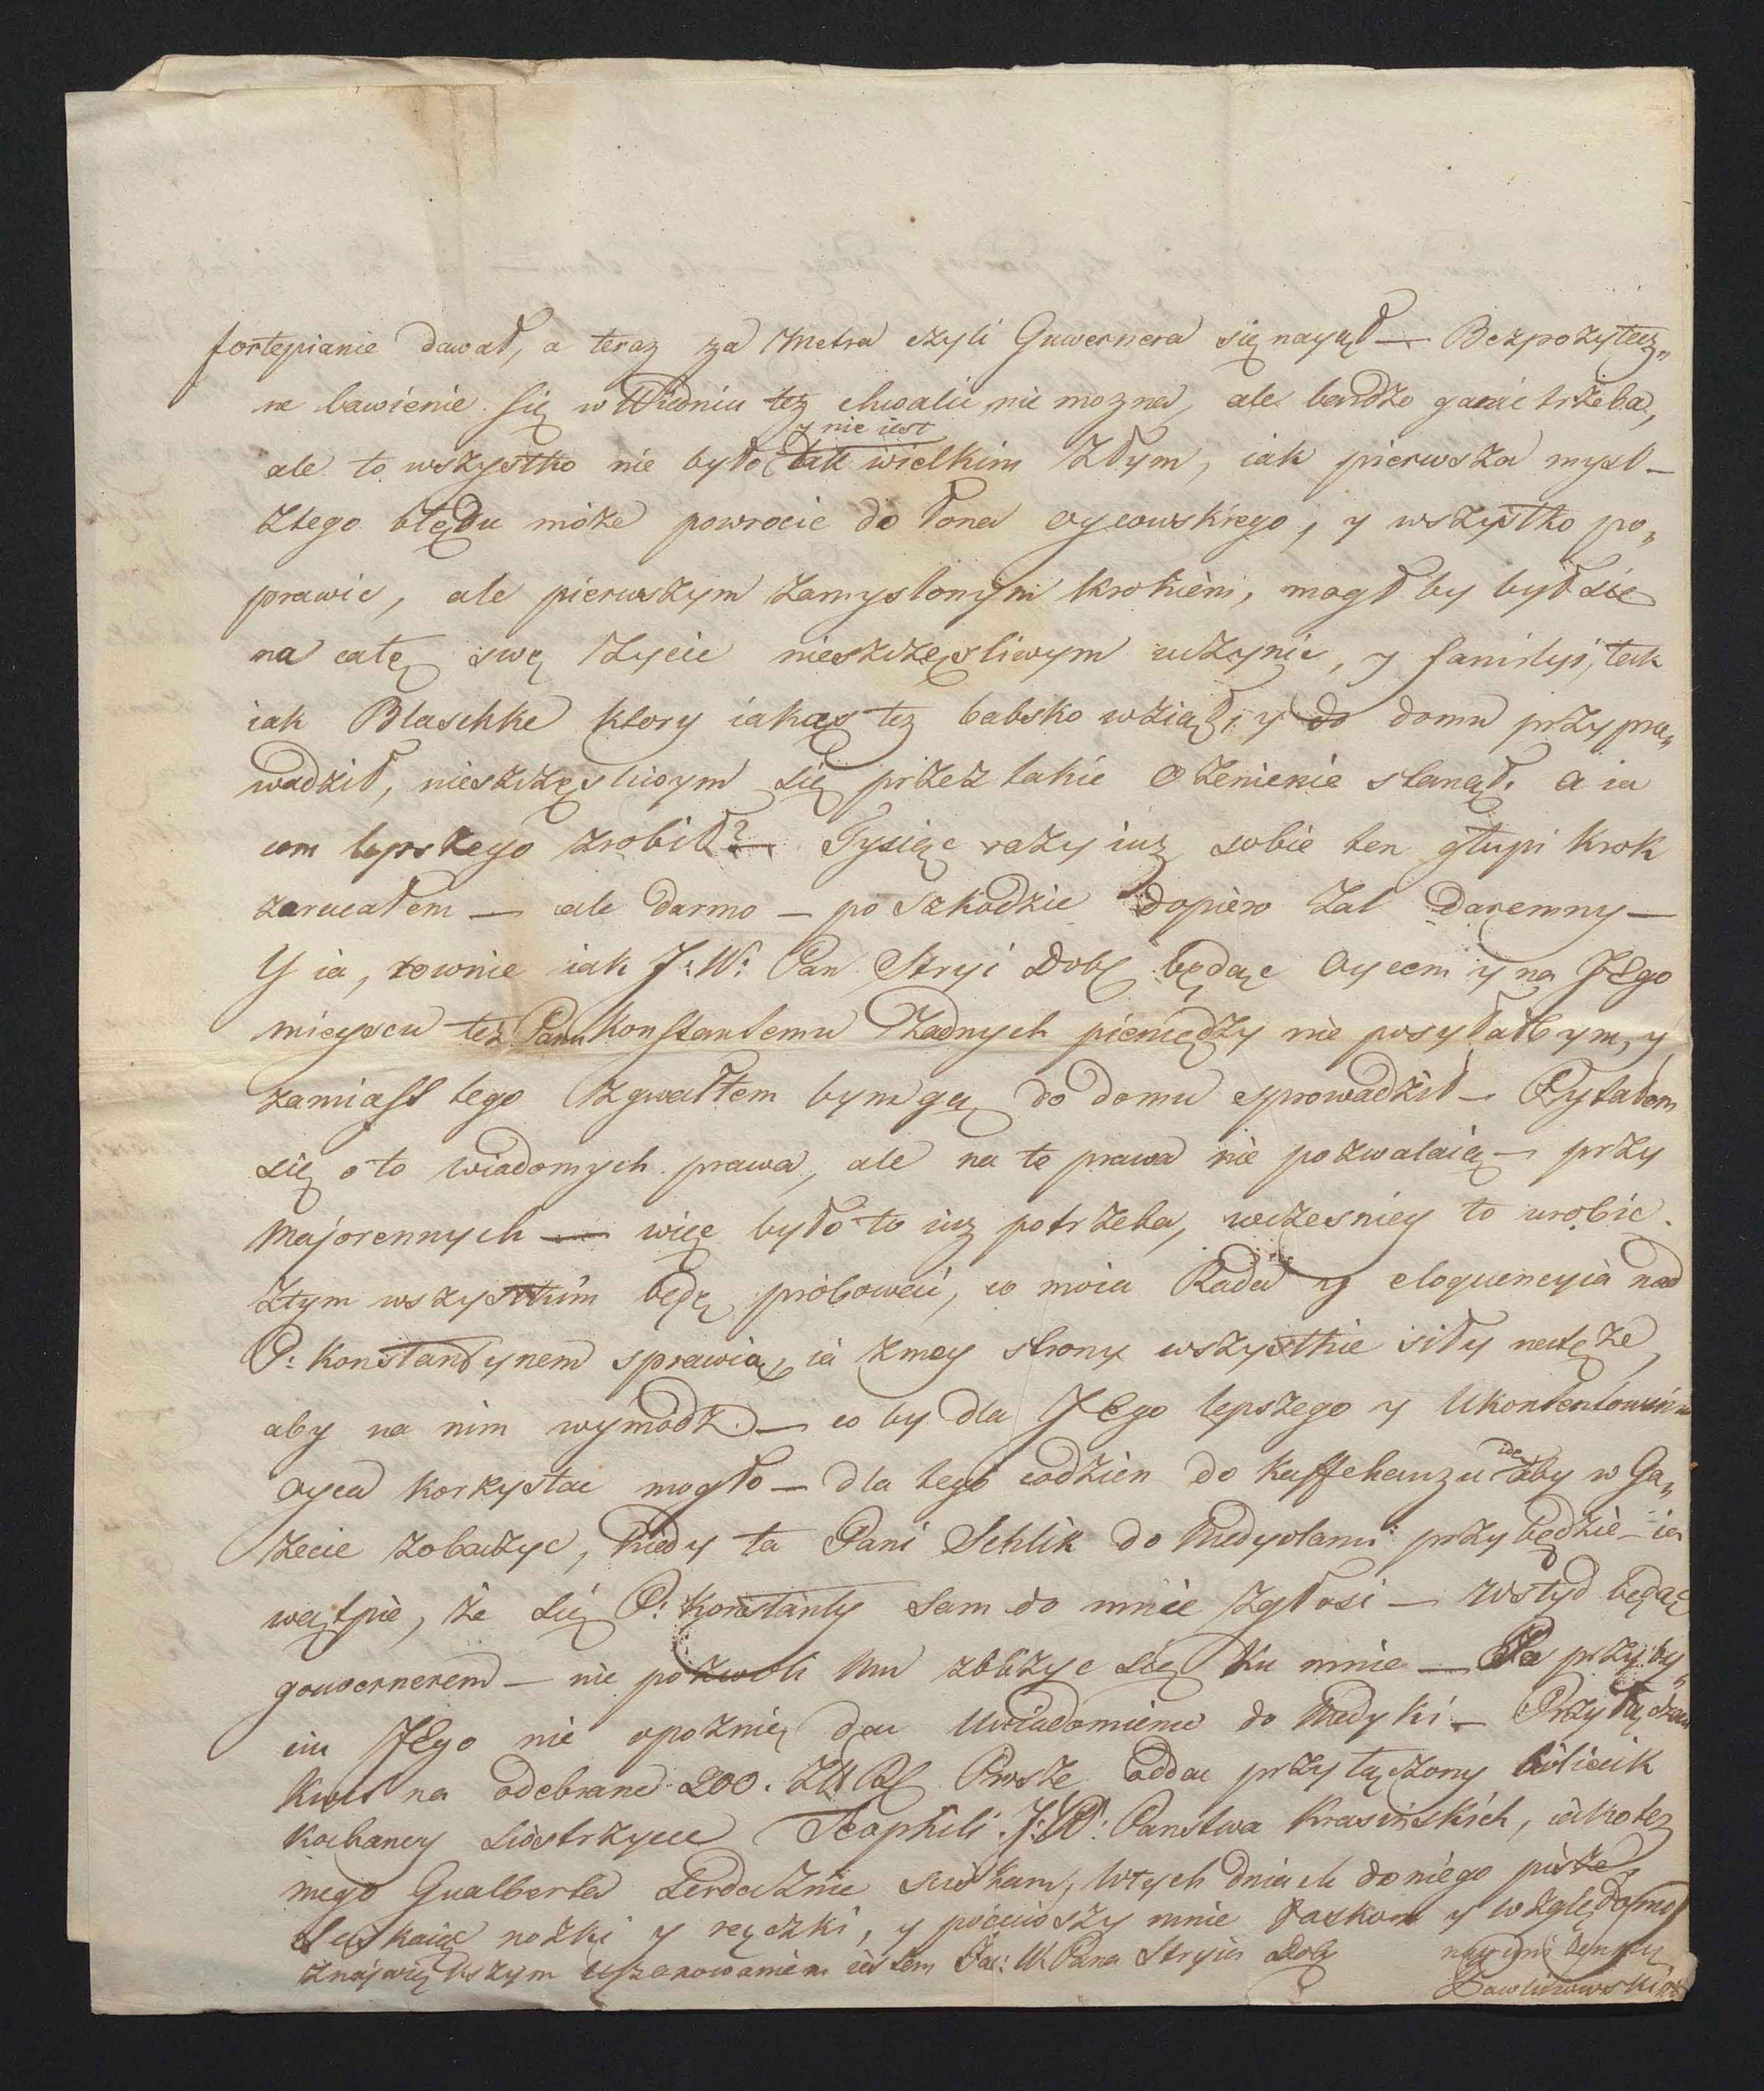 fortepianie dawał, a teraz za Metra czyli Guwernera się nayął — Bezpożytecz„
ne bawienie się w Widniu tez chwalic nie mozna, ale bardzo ganic trzeba,
y nie iest
ale to wszystko nie było tak wielkim złym, iak pierwsza mysl —
Ztego błędu może powrocic do łona oycowskiego, y wszystko po„
prawic, ale pierwszym zamyslonym krokiem, mogł by był sie
na całę swę życie nieszczęsliwym uczynic, y familyi, tak
iak Blaschke ktory iakąs tez babsko wziął, y do domu przypro„
wadził, nieszczęsliwym się przez takie ożenienie stanął. a ia
com lepszego zrobił? — Tysiąc razy iuz sobie ten głupi krok
zarucałem — ale darmo — po szkodzie dopiero żal daremny —
Y ia, rownie iak J: W: Pan Stryi Dobʃ będąc Oycem y na JEgo
mieyscu tez Panu Konstantemu żadnych pieniędzy nie posyłałbym, y
zamiast tego zgwałtem bym gą do domu sprowadził — Pytałem
się o to wiadomych prawa, ale na te prawa nie pozwalaią — przy
Majorennych — więc było to iuz potrzeba, wczesniey to urobic.
Ztym wszystkim będę probowac, co moia Rada y eloquencyia nad
P: Konstantynem sprawią, ia zmey strony wszystkie siły natęże,
aby na nim wymodz — co by dla JEgo lepszego y Ukontentowania
oyca korzystac mogło — dla tego codzien do Kaffehauzu ide aby w Ga„
zecie zobaczyc, kiedy ta Pani Schlik do Medyolanu przybędzie — ia
wątpie, że się P: Konstanty sam do mnie zgłosi — wstyd będąc
gouvernerem — nie pozwoli Mu zbliżyc się Ku mnie — Po przyby„
ciu JEgo nie opoznię dac Uwiadomienie do Medyki — Przyłączam
Kwit na odebrane 200. Zł Rʃ Prosze oddac przyłączony bilicik
kochaney siostrzycce Teophili. J: W: Panstwa Krasinskich, iako tez
mego Gualberta serdecznie sciskam, w tych dniach do niego pisze,
sciskaiąc nozki y rączki, y poleciwszy mnie łaskom y względom
znajwiększym uszanowaniem iestem Jas: W. Pana Stryia Dobʃ
Pawlikowski